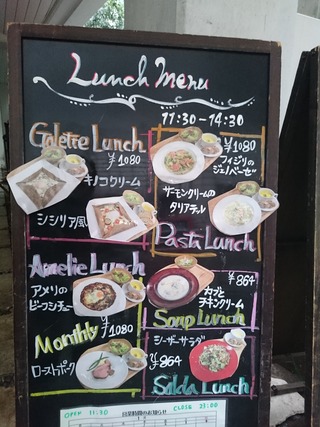 Lunch Menu
11:30-14:30
Galette Lunch
¥1080
キノコクリーム
シシリア風
¥1080
フィジリの
ジェノベーゼ
サーモンクリームの
タリアテル
Pasta Lunch
Amelie Lunch
アメリの
ビーフシチュー
¥1080
¥864
カブと
チキンクリーム
Soup Lunch
Monthly
ローストポーク
シーザーサラダ
¥864
Salda Lunch
OPEN 11:30
営業時間のお知らせ
CLOSE 23:00